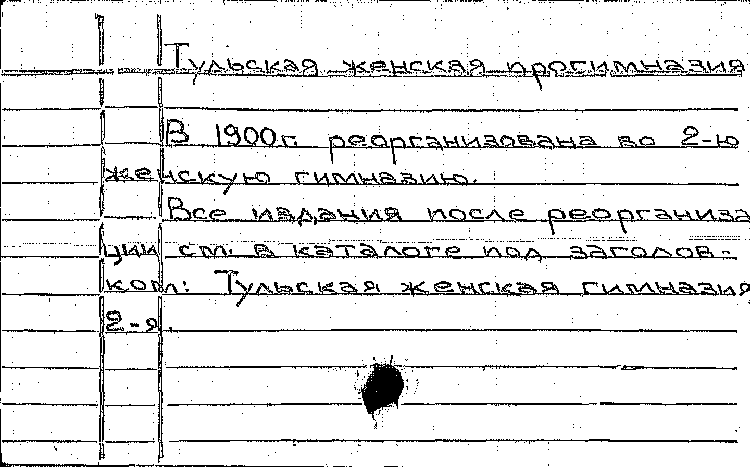 Тульская женская прогимназия
В 1900г. реорганизована во 2-ю
женскую гимназию.
Все издания после реорганиза
ции см. в каталоге под заголов-
ком: Тульская женская гимназия
2-я.